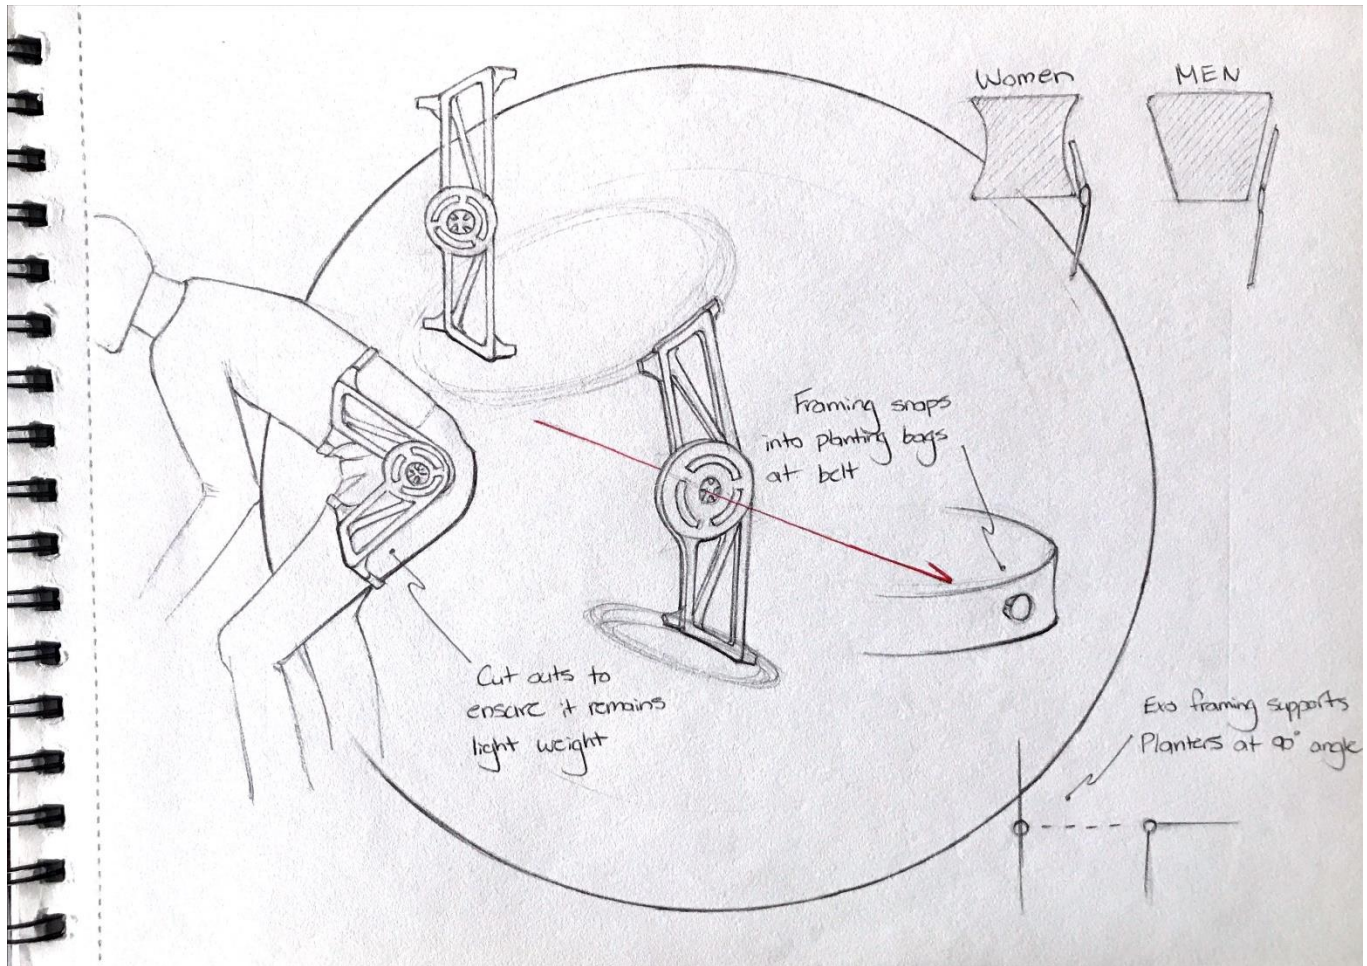 Women
MEN
Framing snaps
into planting bags
at belt
Cut outs to
ensure it remains
light weight
Exo framing supports
Planters at 90° angle